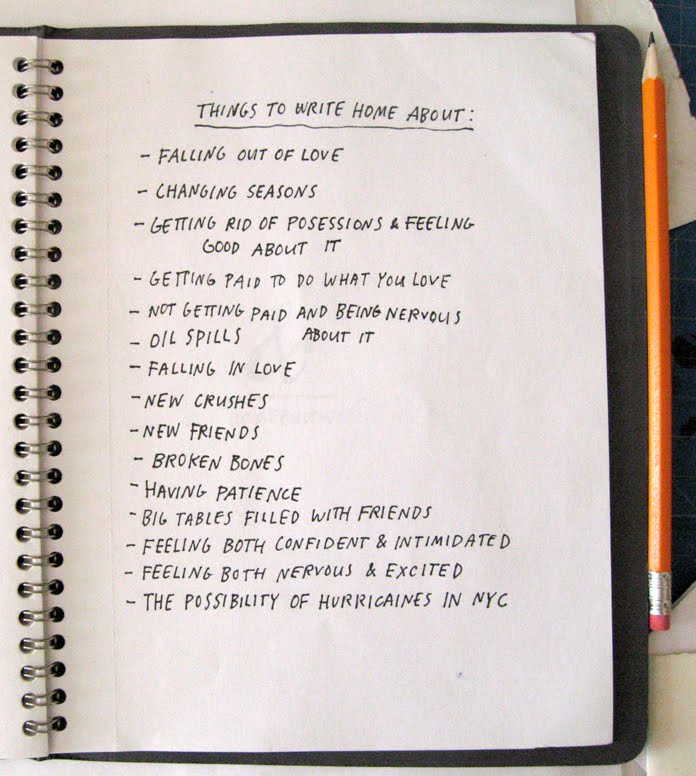 THINGS TO WRITE HOME ABOUT:
- FALLING OUT OF LOVE
- CHANGING SEASONS
- GETTING RID OF POSESSIONS & FEELING
GOOD ABOUT IT
- GETTING PAID TO DO WHAT YOU LOVE
- NOT GETTING PAID AND BEING NERVOUS
ABOUT IT
- OIL SPILLS
- FALLING IN LOVE
- NEW CRUSHES
- NEW FRIENDS
- BROKEN BONES
- HAVING PATIENCE
- BIG TABLES FILLED WITH FRIENDS
- FEELING BOTH CONFIDENT & INTIMIDATED
- FEELING BOTH NERVOUS & EXCITED
- THE POSSIBILITY OF HURRICAINES IN NYC